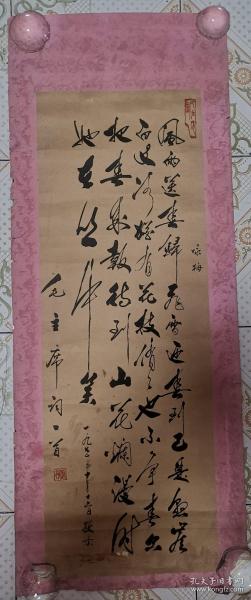 咏梅
風雨送春歸飛雪迎春到已是懸崖
百丈冰猶有花枝俏〻也不争春只
把春来報待到山花爛漫时
她在丛中笑
毛主席词一首
一九七
孔夫子旧书网